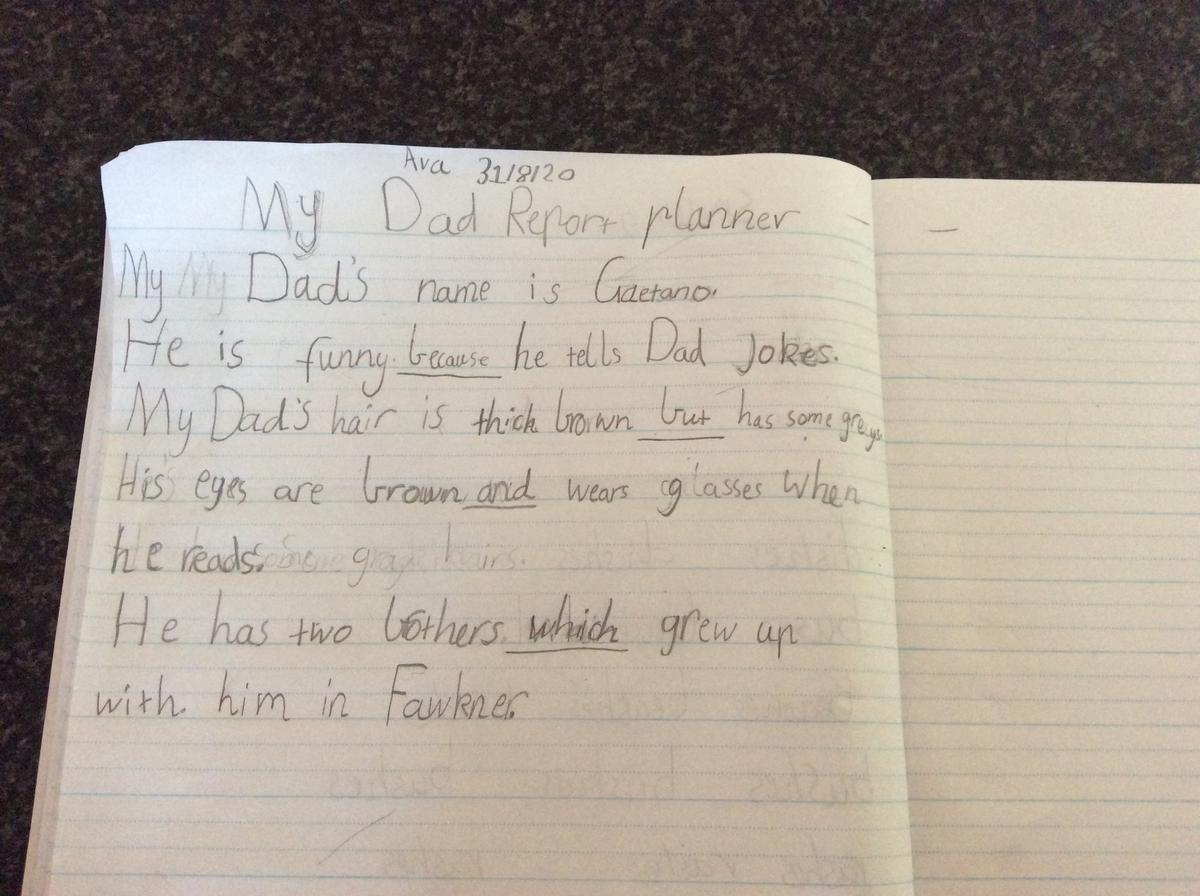 Ava 31/8/20
My Dad Report planner
My Dad's name is Gaetano.
He is funny. because he tells Dad Jokes.
My Dad's hair is thick brown but has some greys.
His eyes are brown and wears glasses when
he reads.
He has two bothers. which grew up
with him in Fawkner.